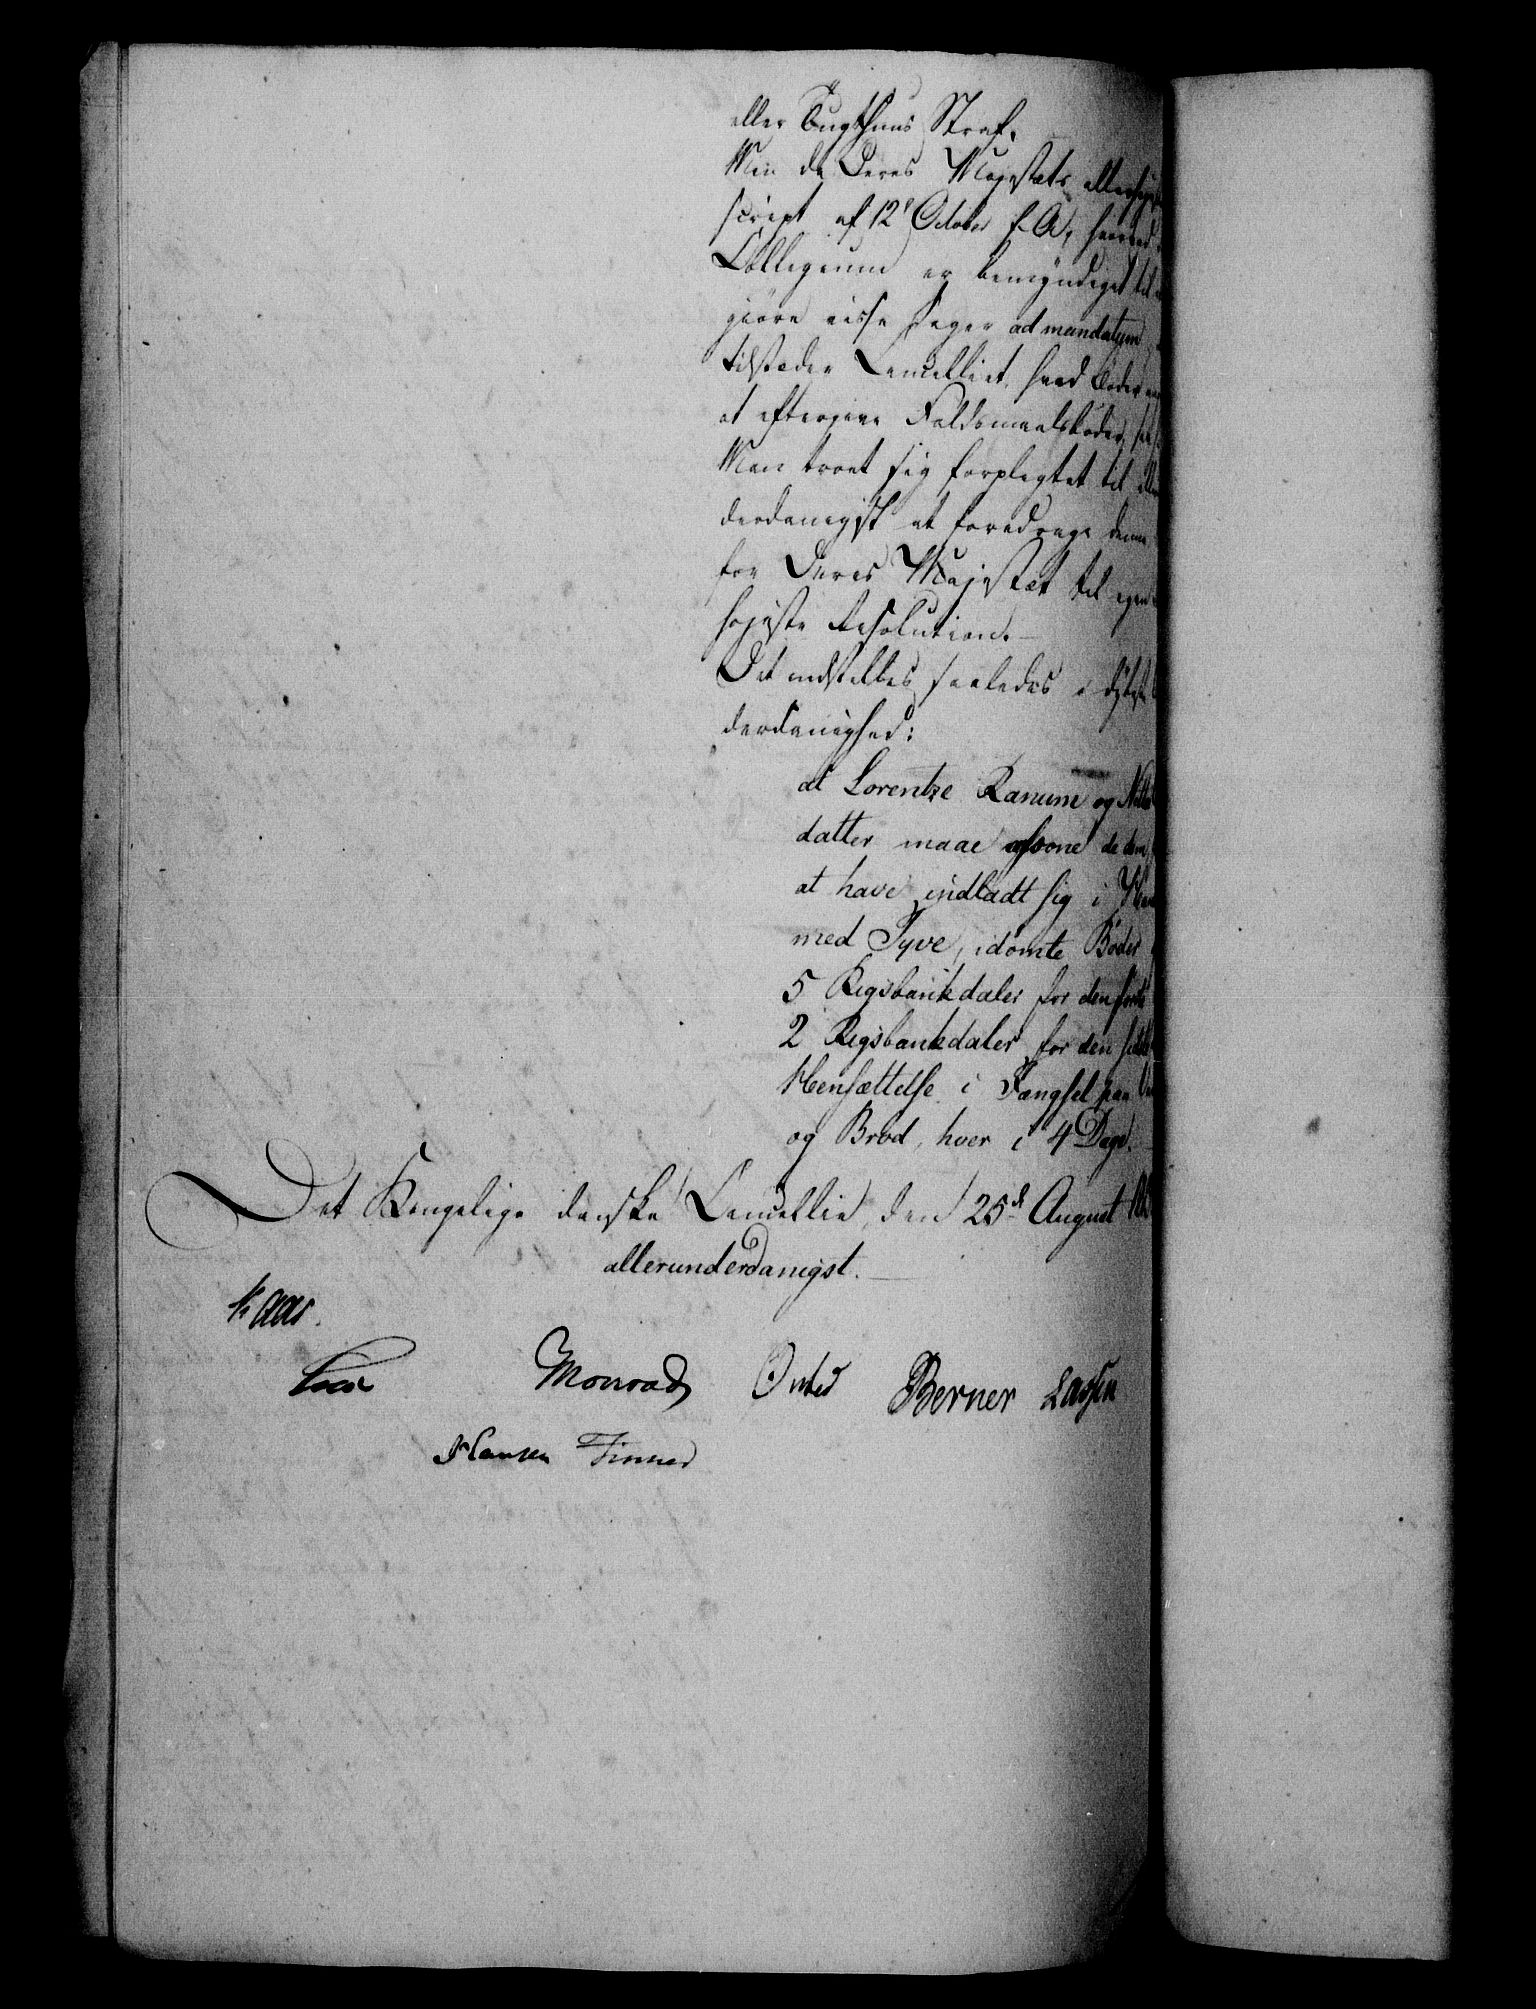 eller Tugthuus Straf.
Men da Deres Majestæts allerhøie
script af 12te October f. A., hvorved
Collegium er bemyndiget til
giøre visse Sager ad mandatum
tilstæder Cancelliet, hvad Bøder
at eftergive Faldsmaalsbøder,
Man troet sig forpligtet til aller
derdanigst at foredrage denne
for Deres Majestæt til egen
høieste Resolution.
Det indstilles saaledes i dybeste
derdanighed:
at Lorentze Ranum og
datter maae afsone de dem
at have indladt sig i
med Tyve, idømte Bøder
5 Rigsbankdaler for den første
2 Rigsbankdaler for den sidste
Hensættelse i Fængsel paa
og Brød, hver i 4 Dage.
Det Kongelige danske Cancellie, den 25de August
allerunderdanigst.
Kaas.
Monrad Ørsted Berner Lassen
Hansen